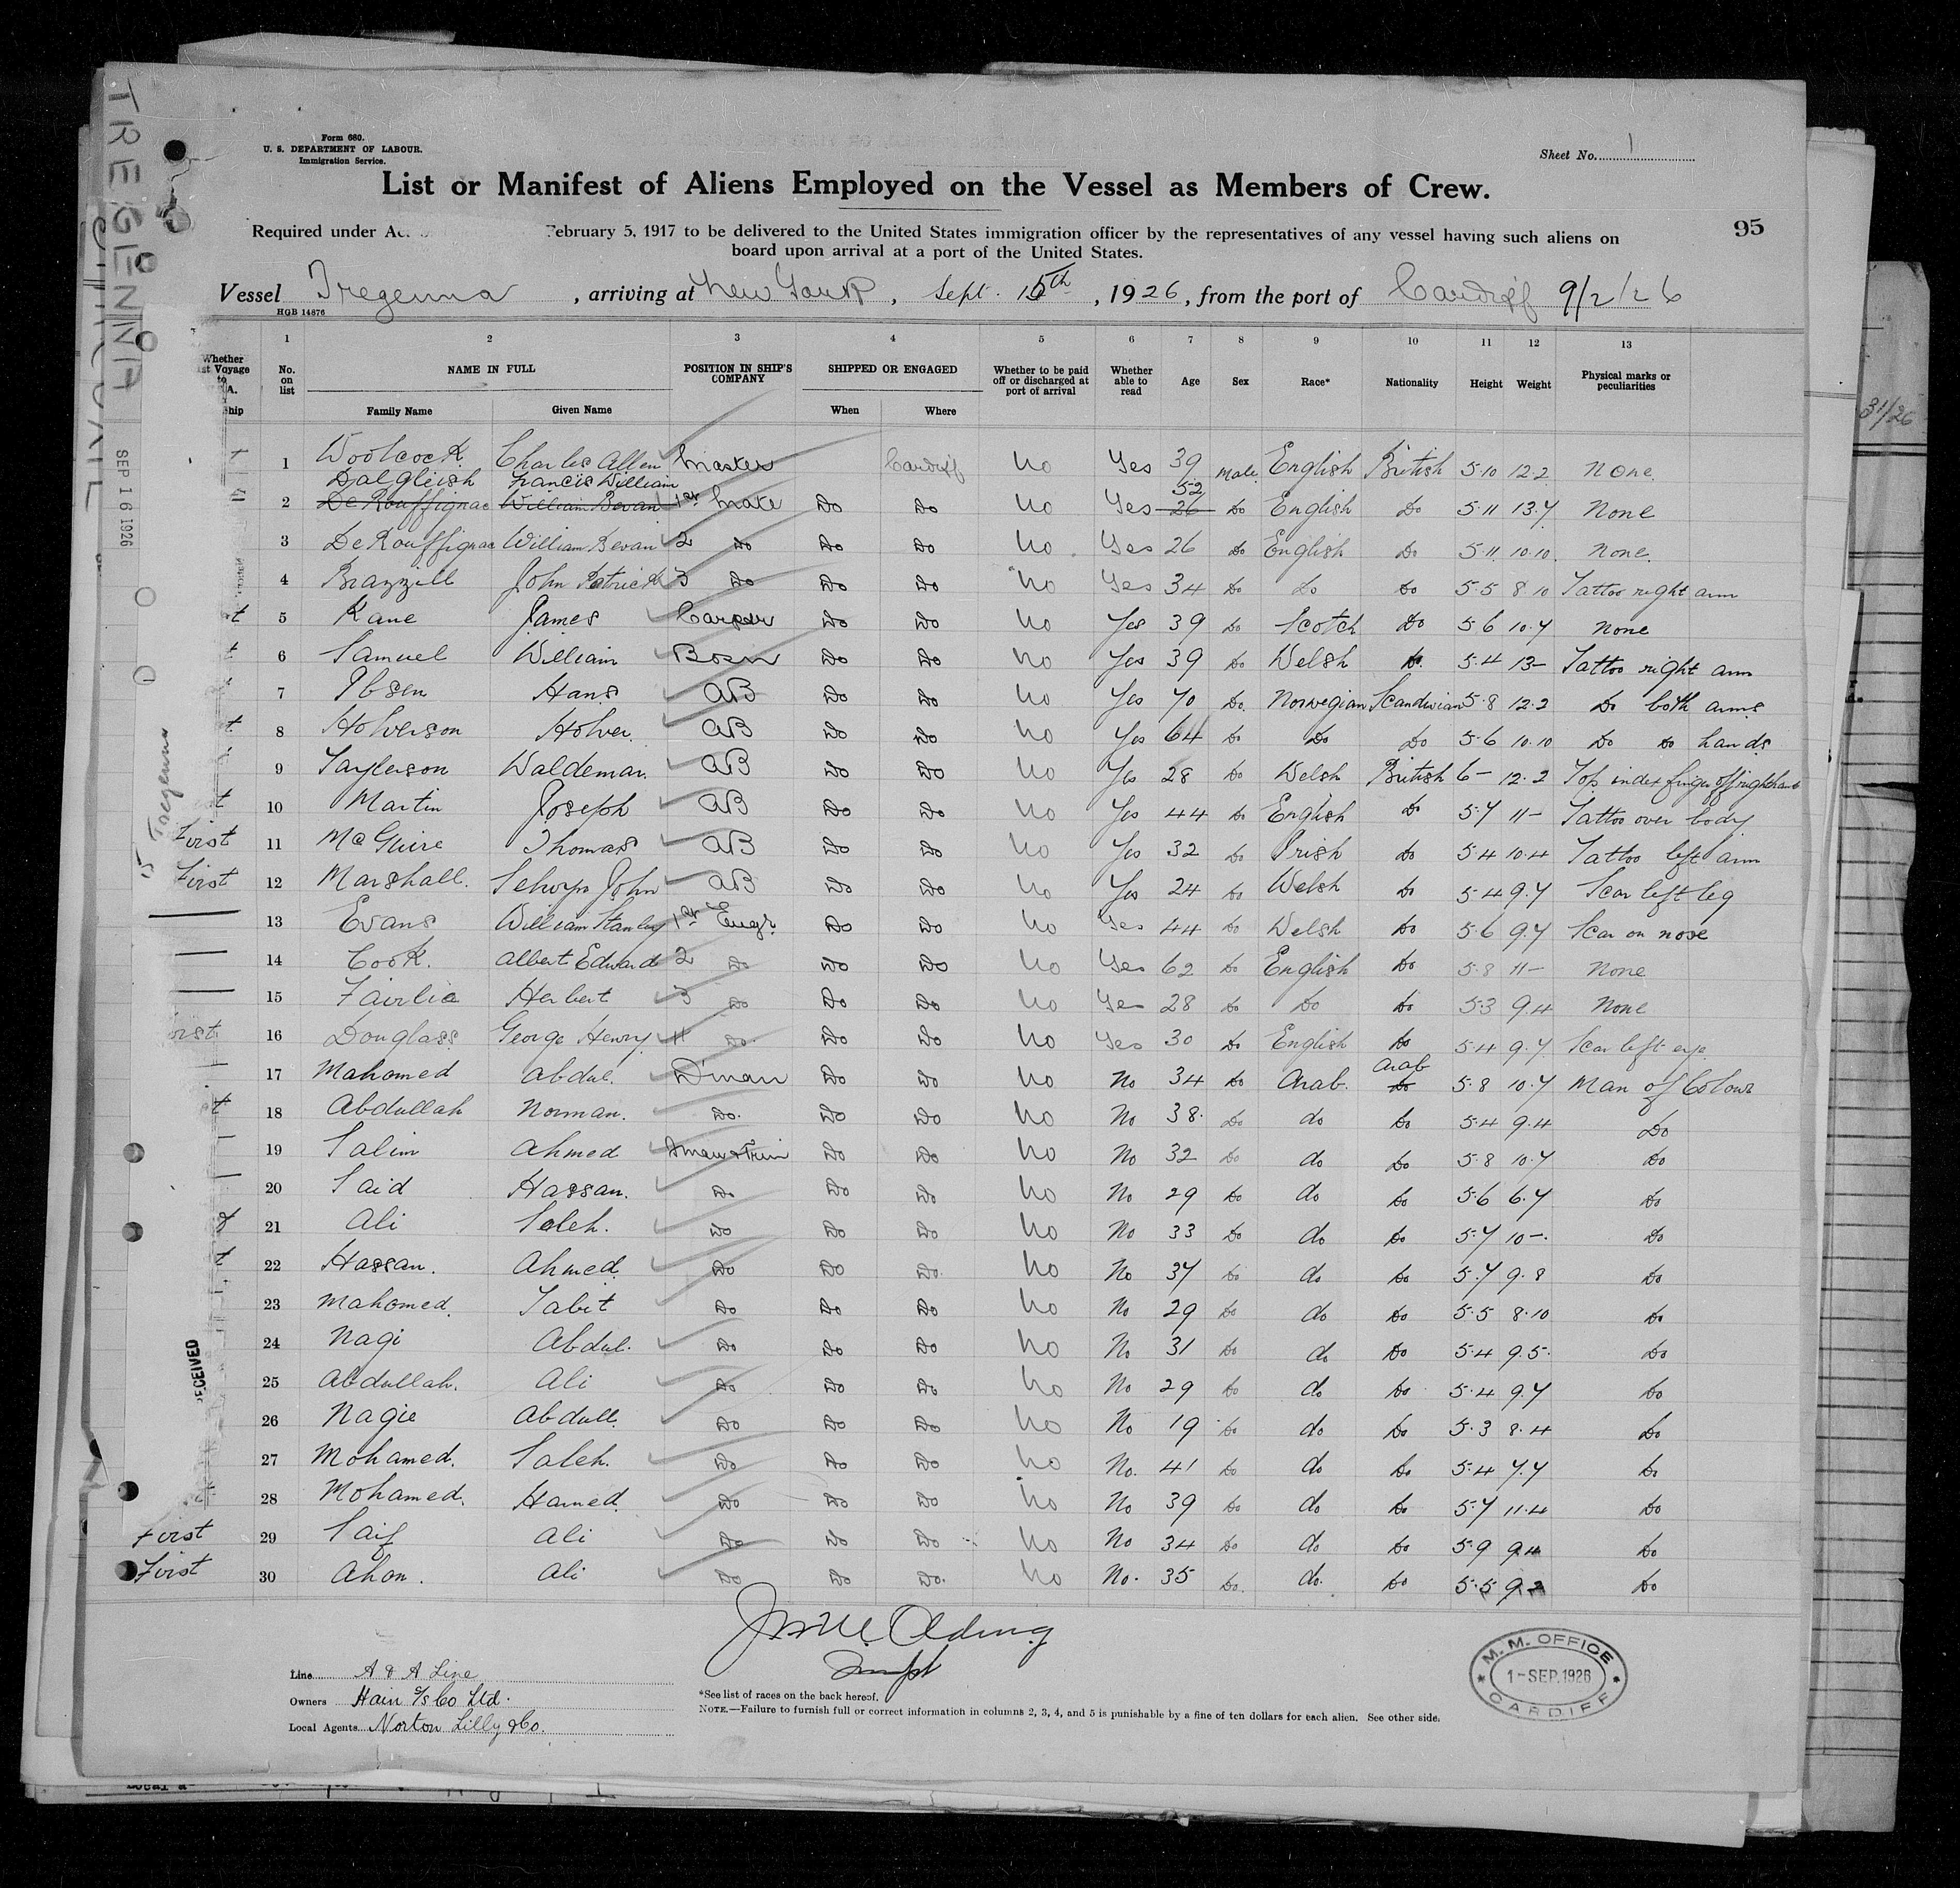 TREGENNA
SEP 16 1926
Form 680.
U. S. DEPARTMENT OF LABOUR.
Immigration Service.
Sheet No. 1
List or Manifest of Aliens Employed on the Vessel as Members of Crew.
95
Required under Ac. February 5, 1917 to be delivered to the United States immigration officer by the representatives of any vessel having such aliens on
board upon arrival at a port of the United States.
Vessel Tregenna, arriving at New York, Sept. 15th, 1926, from the port of Cardiff 9/2/26
HGB 14876
1 2 3 4 5 6 7 8 9 10 11 12 13
Whether st Voyage to A. ship No. on list NAME IN FULL POSITION IN SHIP'S COMPANY SHIPPED OR ENGAGED Whether to be paid off or discharged at port of arrival Whether able to read Age Sex Race* Nationality Height Weight Physical marks or peculiarities
Family Name Given Name When Where
1 Woolcock Charles Allen Master Cardiff No Yes 39 Male English British 5·10 12.2 None
Dalgleish Francis William 52
2 De Rouffignac William Bevan 1st Mate Do Do No Yes 26 Do English Do 5·11 13.7 None
3 De Rouffignac William Bevan 2 Do Do Do No Yes 26 Do English Do 5·11 10.10 None
4 Brazzill John Patrick 3 Do Do Do No Yes 34 Do Do Do 5·5 8.10 Tattoo right arm
5 Kane James Do Do No Yes 39 Do Scotch Do 5·6 10.7 None
6 Samuel William Bosn Do Do No Yes 39 Do Welsh Do 5·4 13- Tattoo right arm
7 Ibsen Hans AB Do Do No Yes 70 Do Norwegian Scandivian 5·8 12.2 Do both arms
8 Holverson Holver AB Do Do No Yes 64 Do Do Do 5·6 10.10 Do Do hands
9 Taylerson Waldemar AB Do Do No Yes 28 Do Welsh British 6- 12.2 Top index finger off right hand
10 Martin Joseph AB Do Do No Yes 44 Do English Do 5·7 11- Tattoo over body
First 11 McGuire Thomas AB Do Do No Yes 32 Do Irish Do 5·4 10.4 Tattoo left arm
First 12 Marshall Selwyn John AB Do Do No Yes 24 Do Welsh Do 5·4 9.7 Scar left leg
13 Evans William Stanley 1st Engr. Do Do No Yes 44 Do Welsh Do 5·6 9.7 Scar on nose
14 Cook Albert Edward 2 Do Do Do No Yes 62 Do English Do 5·8 11- None
15 Fairlie Herbert 3 Do Do Do No Yes 28 Do Do Do 5·3 9.4 None
16 Douglass George Henry 4 Do Do Do No Yes 30 Do English Do 5·4 9.7 Scar left eye
Arab
17 Mahomed Abdul D'man Do Do No No 34 Do Arab Do 5·8 10.7 Man of Colour
18 Abdullah Norman Do Do Do No No 38 Do do Do 5·4 9.4 Do
19 Salim Ahmed Do Do No No 32 Do do Do 5·8 10.7 Do
20 Said Hassan Do Do Do No No 29 Do do Do 5·6 6.7 Do
21 Ali Saleh Do Do Do No No 33 Do do Do 5·7 10- Do
22 Hassan Ahmed Do Do Do No No 37 Do do Do 5·7 9.8 Do
23 Mahomed Tabit Do Do Do No No 29 Do do Do 5·5 8.10 Do
24 Nagi Abdul Do Do Do No No 31 Do do Do 5·4 9.5 Do
25 Abdullah Ali Do Do Do No No 29 Do do Do 5·4 9.7 Do
26 Nagie Abdull Do Do Do No No 19 Do do Do 5·3 8.4 Do
27 Mohamed Saleh Do Do Do No No 41 Do do Do 5·4 7.7 Do
28 Mohamed Hamed Do Do Do No No 39 Do do Do 5·7 11.4 Do
First 29 Saif Ali Do Do Do No No 34 Do do Do 5·9 9.4 Do
First 30 Ahon Ali Do Do Do No No 35 Do do Do 5·5 9.2 Do
Line A & A Line
Owners Hain S/S Co Ltd.
Local Agents Norton Lilly & Co.
*See list of races on the back hereof.
NOTE.—Failure to furnish full or correct information in columns 2, 3, 4, and 5 is punishable by a fine of ten dollars for each alien. See other side.
M. M. OFFICE
1-SEP.1926
CARDIFF
31/26